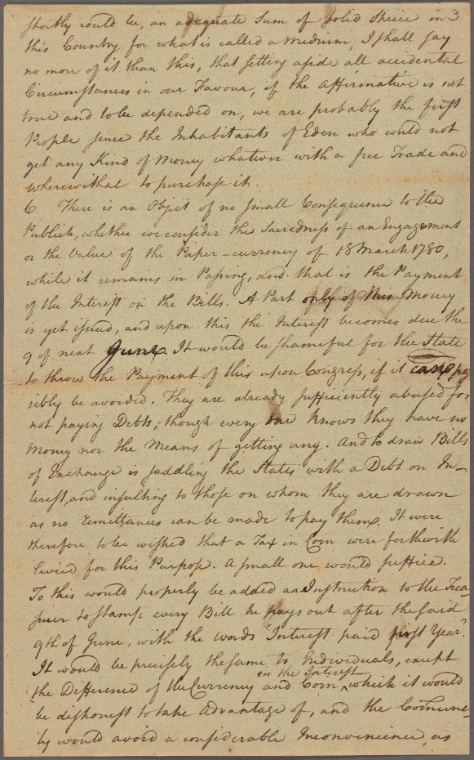 shortly could be, an adequate Sum of Solid Specie in 3
this Country for what is called a Medium, I shall say
no more of it than this, that setting aside all accidental
Circumstances in our Favour, if the Affirmative is not
true and to be depended on, we are probably the first
People since the Inhabitants of Eden who could not
get any Kind of Money whatever with a free Trade and
wherewithal to purchase it.
6 There is an Object of no small Consequence to the
Publick, whether we consider the Sacredness of an Engagement
or the Value of the Paper-currency of 18 March 1780,
while it remains in Passing, and that is the Payment
of the Interest on the Bills. A Part only of this Money
is yet issued, and upon this the Interest becomes due the
9 of next June. It would be shameful for the State
to throw the Payment of this upon Congress, if it can pos
sibly be avoided. They are already sufficiently abused for
not paying Debts, though every one knows they have no
Money nor the Means of getting any. And to draw Bills
of Exchange is saddling the States with a Debt on In-
terest, and insulting to those on whom they are drawn
as no Remittances can be made to pay them. It were
therefore to be wished that a Tax in Coin were forthwith
levied for this Purpose. A small one would suffice.
To this would properly be added an Instruction to the Trea
surer to stamp every Bill he pays out after the said
9th of June, with the words "Interest paid first Year."
It would be precisely the same, to Individuals, except
on the Interest
the Difference of the Currency and Coin, which it would
be dishonest to take Advantage of, and the Commun-
ity would avoid a considerable Inconvenience, as